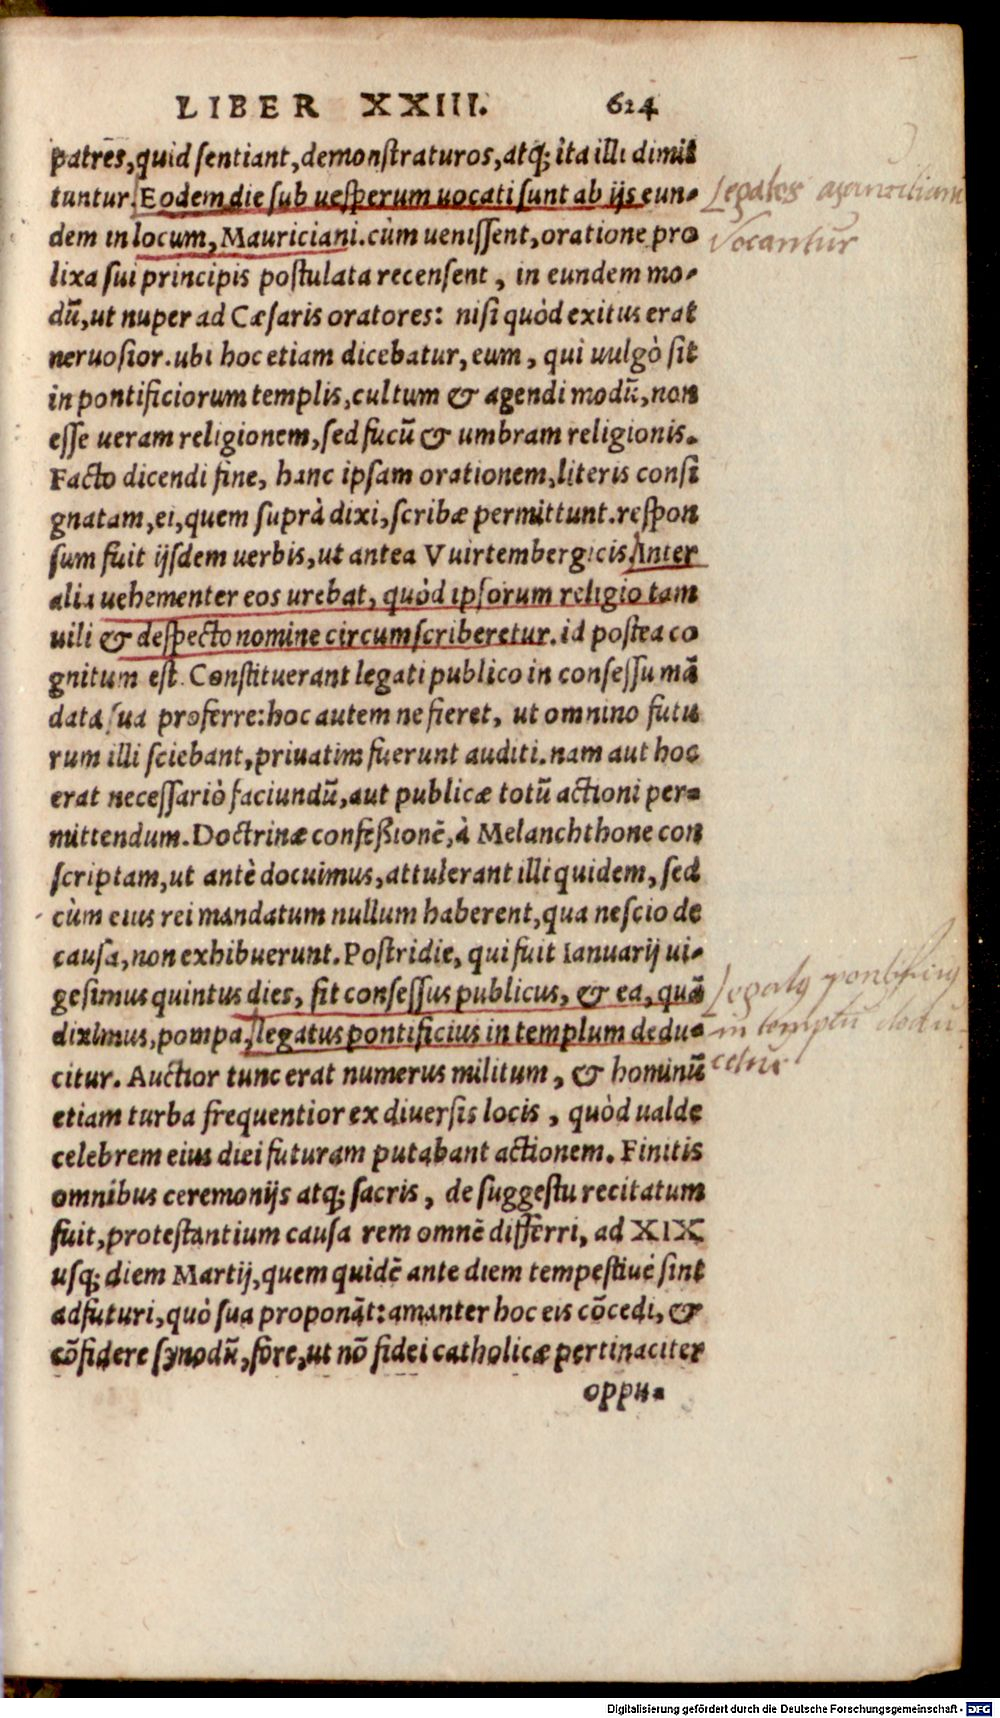 LIBER XXIII. 624
patres, quid sentiant, demonstraturos, atq; ita illi dimit
tuntur. Eodem die sub uesperum uocati sunt ab ijs eun-
dem in locum, Mauriciani. cùm uenissent, oratione pro
lixa sui principis postulata recensent, in eundem mo-
dū, ut nuper ad Cæsaris oratores: nisi quòd exitus erat
neruosior. ubi hoc etiam dicebatur, eum, qui uulgò sit
in pontificiorum templis, cultum & agendi modū, non
esse ueram religionem, sed fucū & umbram religionis.
Facto dicendi fine, hanc ipsam orationem, literis consi
gnatam, ei, quem suprà dixi, scribæ permittunt. respon
sum fuit ijsdem uerbis, ut antea Vuirtembergicis. Inter
alia uehementer eos urebat, quòd ipsorum religio tam
uili & despecto nomine circumscriberetur. id postea co
gnitum est. Constituerant legati publico in consessu mā
data sua proferre: hoc autem ne fieret, ut omnino futu
rum illi sciebant, priuatim fuerunt auditi. nam aut hoc
erat necessariò faciundū, aut publicæ totū actioni per-
mittendum. Doctrinæ confeßionē, à Melanchthone con
scriptam, ut antè docuimus, attulerant illi quidem, sed
cùm eius rei mandatum nullum haberent, qua nescio de
causa, non exhibuerunt. Postridie, qui fuit Ianuarij ui-
gesimus quintus dies, fit consessus publicus, & ea, quā
diximus, pompa, legatus pontificius in templum dedu-
citur. Auctior tunc erat numerus militum, & hominū
etiam turba frequentior ex diuersis locis, quòd ualde
celebrem eius diei futuram putabant actionem. Finitis
omnibus ceremonijs atq; sacris, de suggestu recitatum
fuit, protestantium causa rem omnē differri, ad XIX
usq; diem Martij, quem quidē ante diem tempestiuè sint
adfuturi, quò sua proponāt: amanter hoc eis cōcedi, &
cōfidere synodū, fore, ut nō fidei catholicæ pertinaciter
oppu-
Legates
Vocantur
in templū
Digitalisierung gefördert durch die Deutsche Forschungsgemeinschaft - DFG